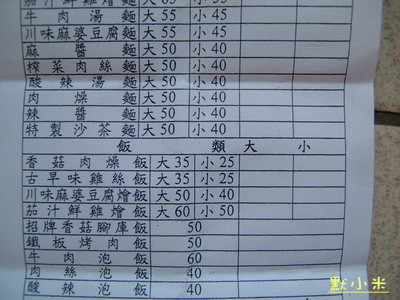 茄汁鮮雞燴麵 大65 小55
牛肉湯麵 大55 小45
川味麻婆豆腐麵 大55 小45
麻醬麵 大50 小40
榨菜肉絲麵 大50 小40
酸辣湯麵 大50 小40
肉燥麵 大50 小40
辣醬麵 大50 小40
特製沙茶麵 大50 小40
飯類 大 小
香菇肉燥飯 大35 小25
古早味雞絲飯 大35 小25
川味麻婆豆腐燴飯 大50 小40
茄汁鮮雞燴飯 大60 小50
招牌香菇腳庫飯 50
鐵板烤肉飯 50
牛肉泡飯 60
肉絲泡飯 40
酸辣泡飯 40
默小米